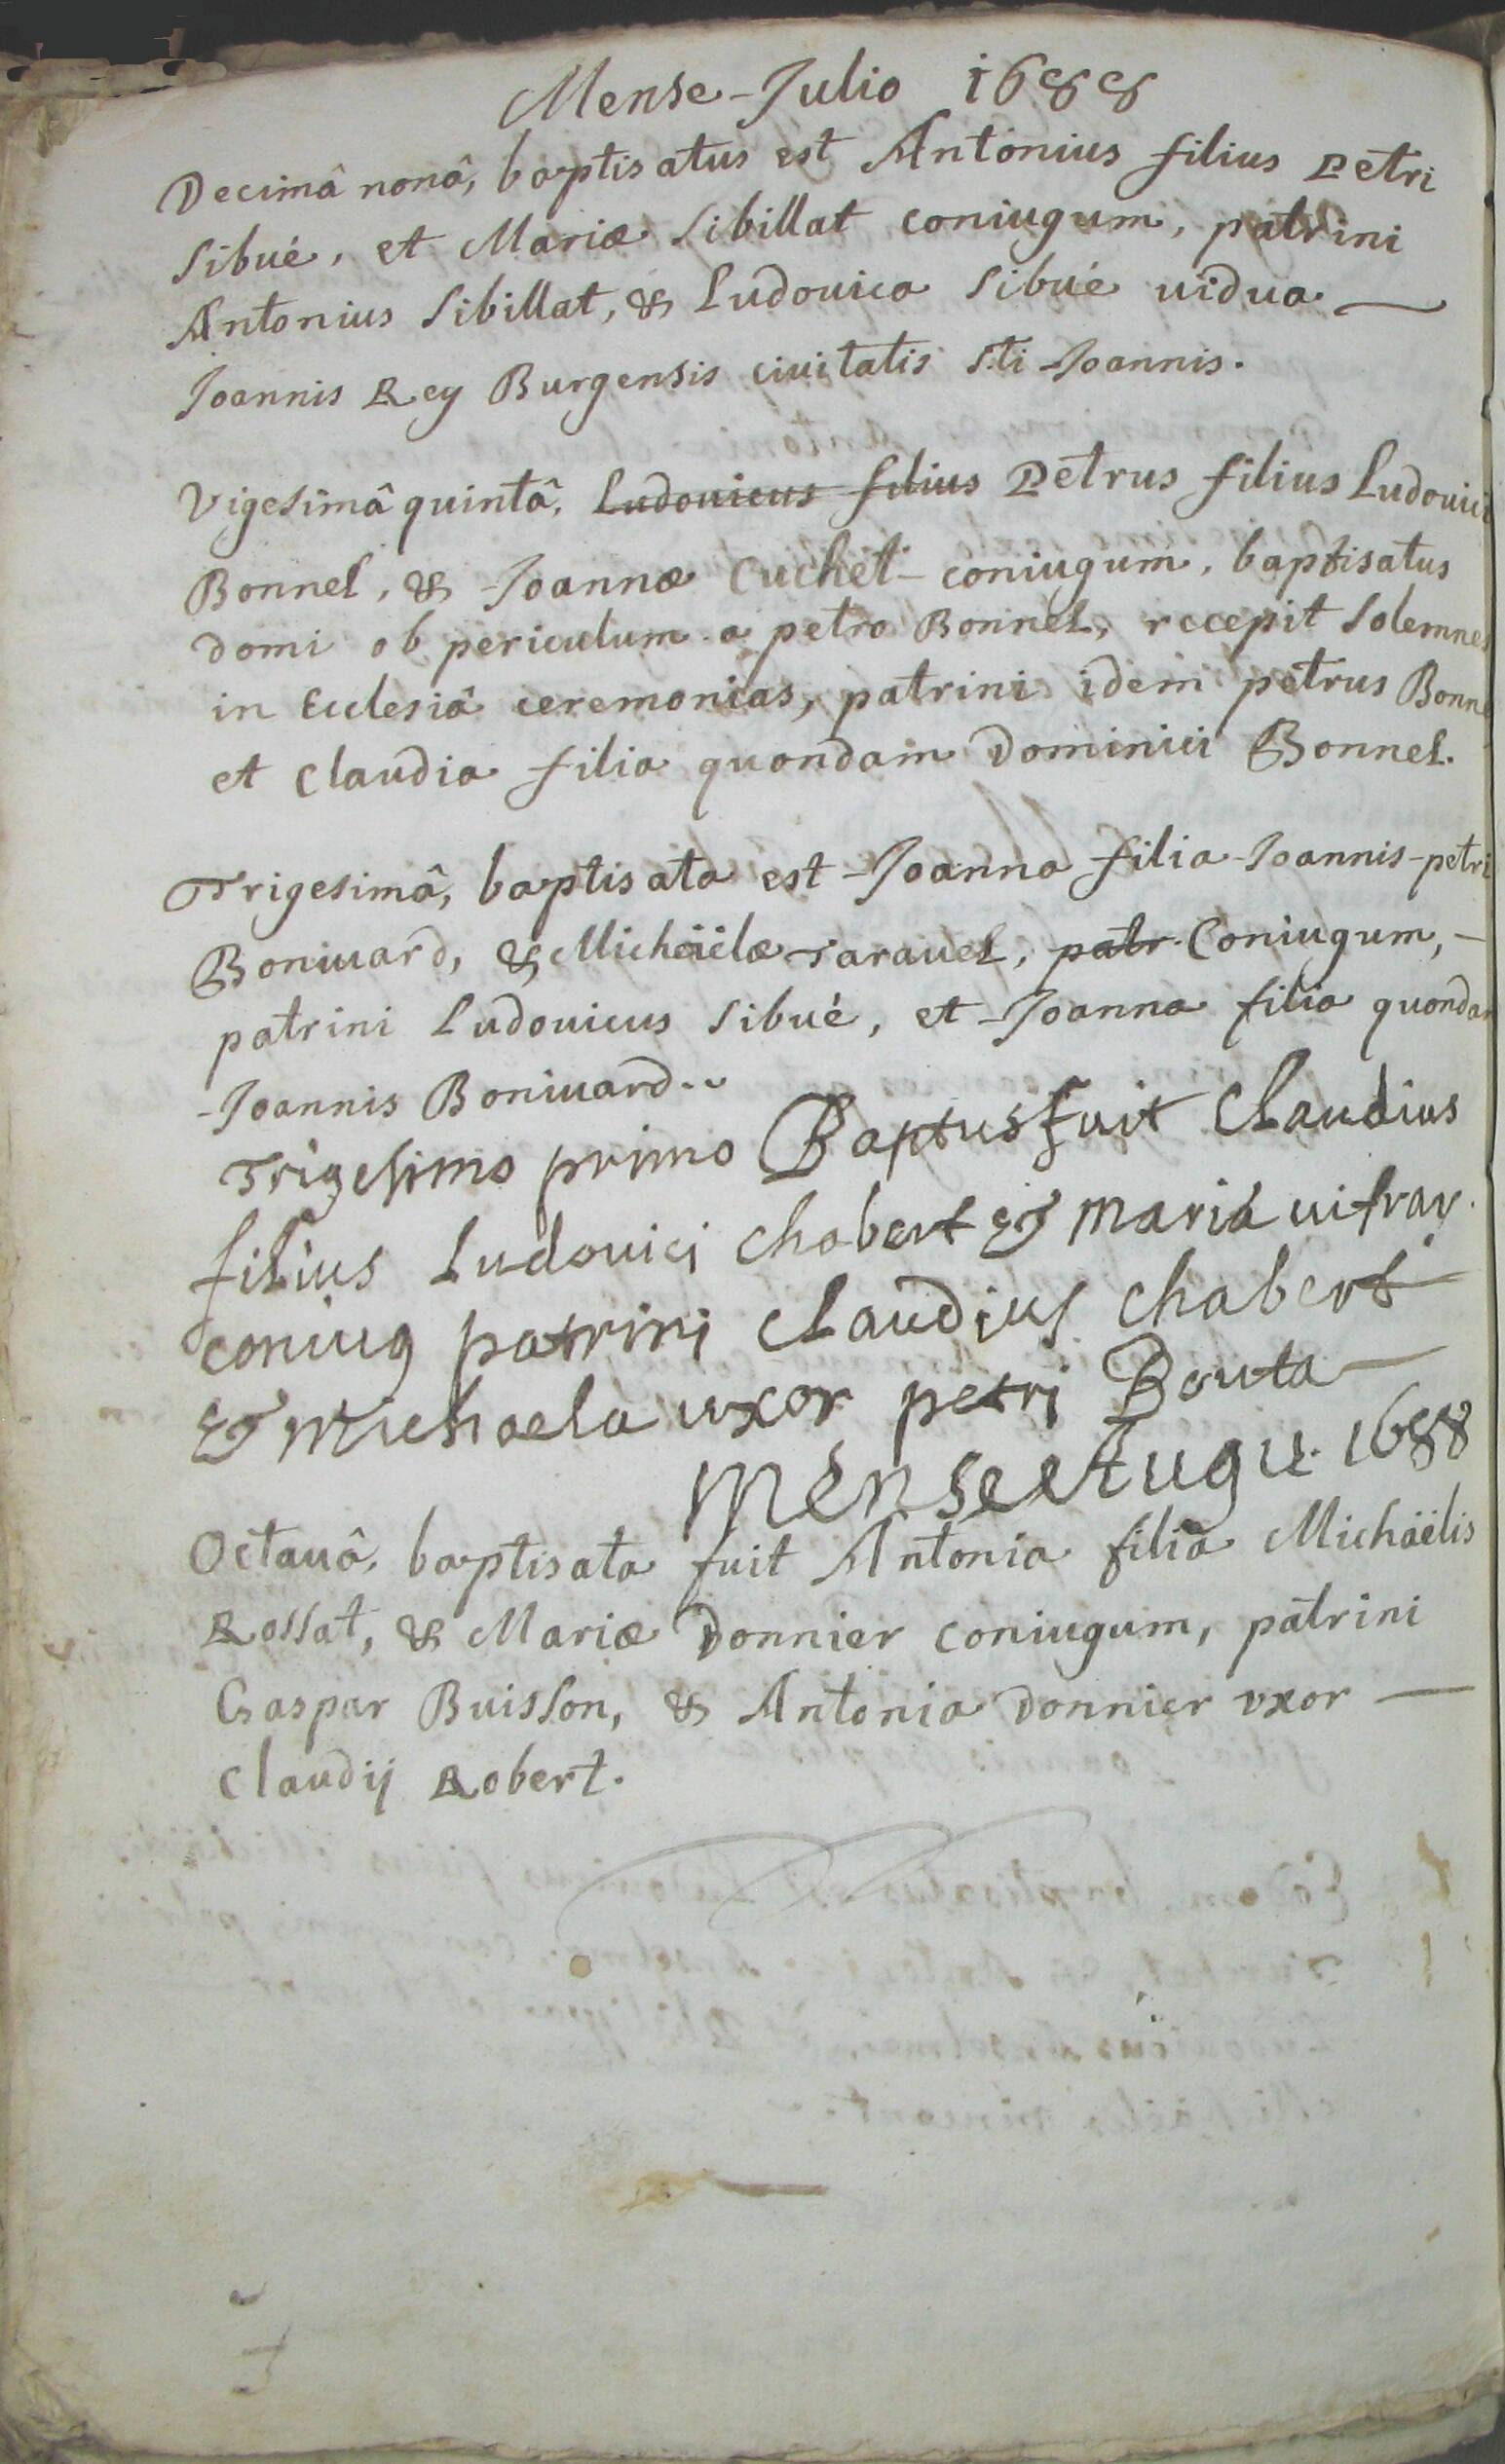 Mense Julio 1688
Decimâ nonâ, baptisatus est Antonius filius Petri
Sibué, et Mariæ Sibillat coniugum, patrini
Antonius Sibillat, & Ludouica Sibué uidua —
Joannis Rey Burgensis ciuitatis Sti Joannis.
Vigesimâ quintâ, Ludouicus filius Petrus filius Ludouici
Bonnel, & Joannæ Cuchet coniugum, baptisatus
domi ob periculum a petro Bonnel, recepit Solemnes
in Ecclesiâ ceremonias, patrini idem petrus Bonne
et Claudia filia quondam Dominici Bonnel.
Trigesimâ, baptisata est Joanna filia Joannis-petri
Boniuard, & Michaëlæ Tarauel, patr. Coniugum, —
patrini Ludouicus Sibué, et Joanna filia quondam
Joannis Boniuard..
Trigesimo primo Baptus fuit Claudius
filius Ludouici Chabert & Maria uifray.
coniug patrini Claudius Chabert
& Michaela uxor petri Bouta —
Mense Augu. 1688
Octauâ, baptisata fuit Antonia filia Michaëlis
Rossat, & Mariæ Donnier coniugum, patrini
Gaspar Buisson, & Antonia Donnier vxor —
Claudij Robert.